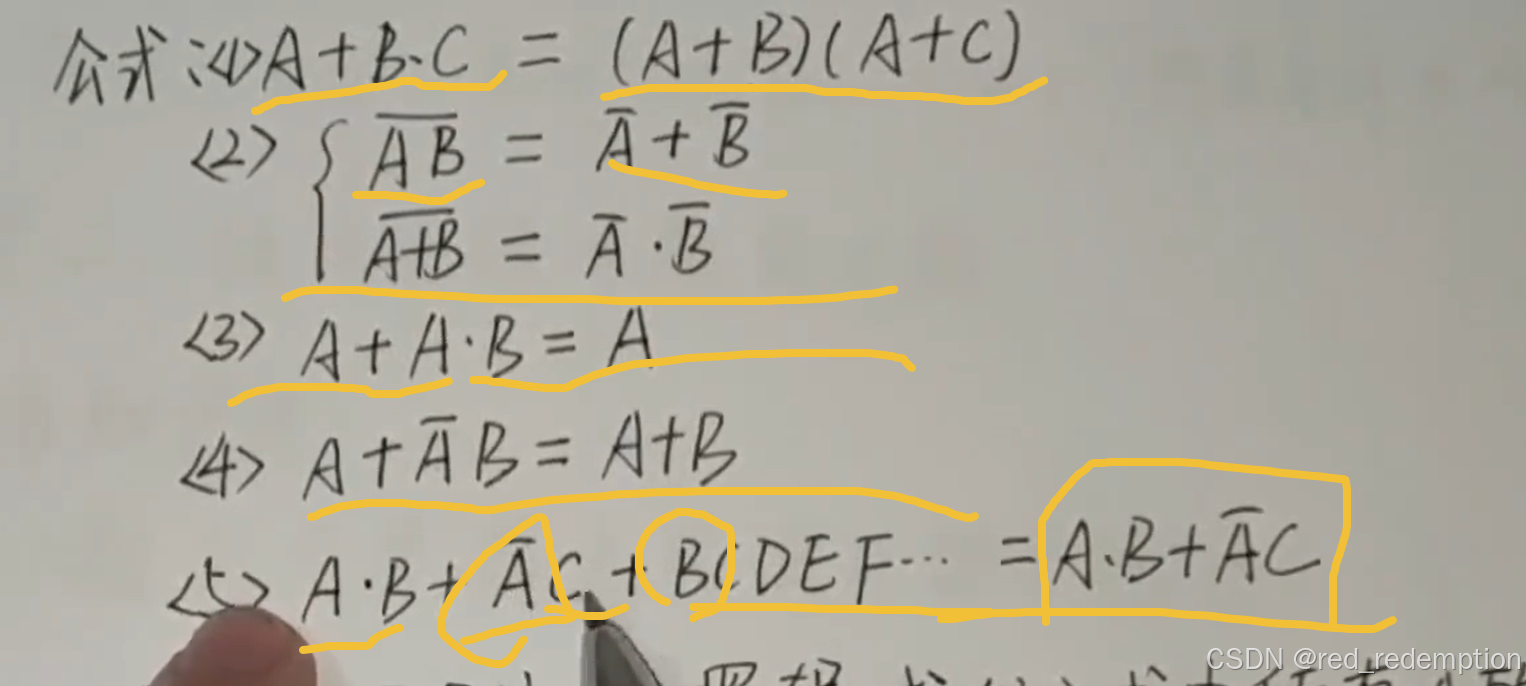 公式:<1> A+B·C = (A+B)(A+C)
<2> { \overline{AB} = \overline{A}+\overline{B}
\overline{A+B} = \overline{A}·\overline{B}
<3> A+A·B = A
<4> A+\overline{A}B = A+B
<5> A·B+\overline{A}C+BCDEF··· = A·B+\overline{A}C
CSDN @red_redemption